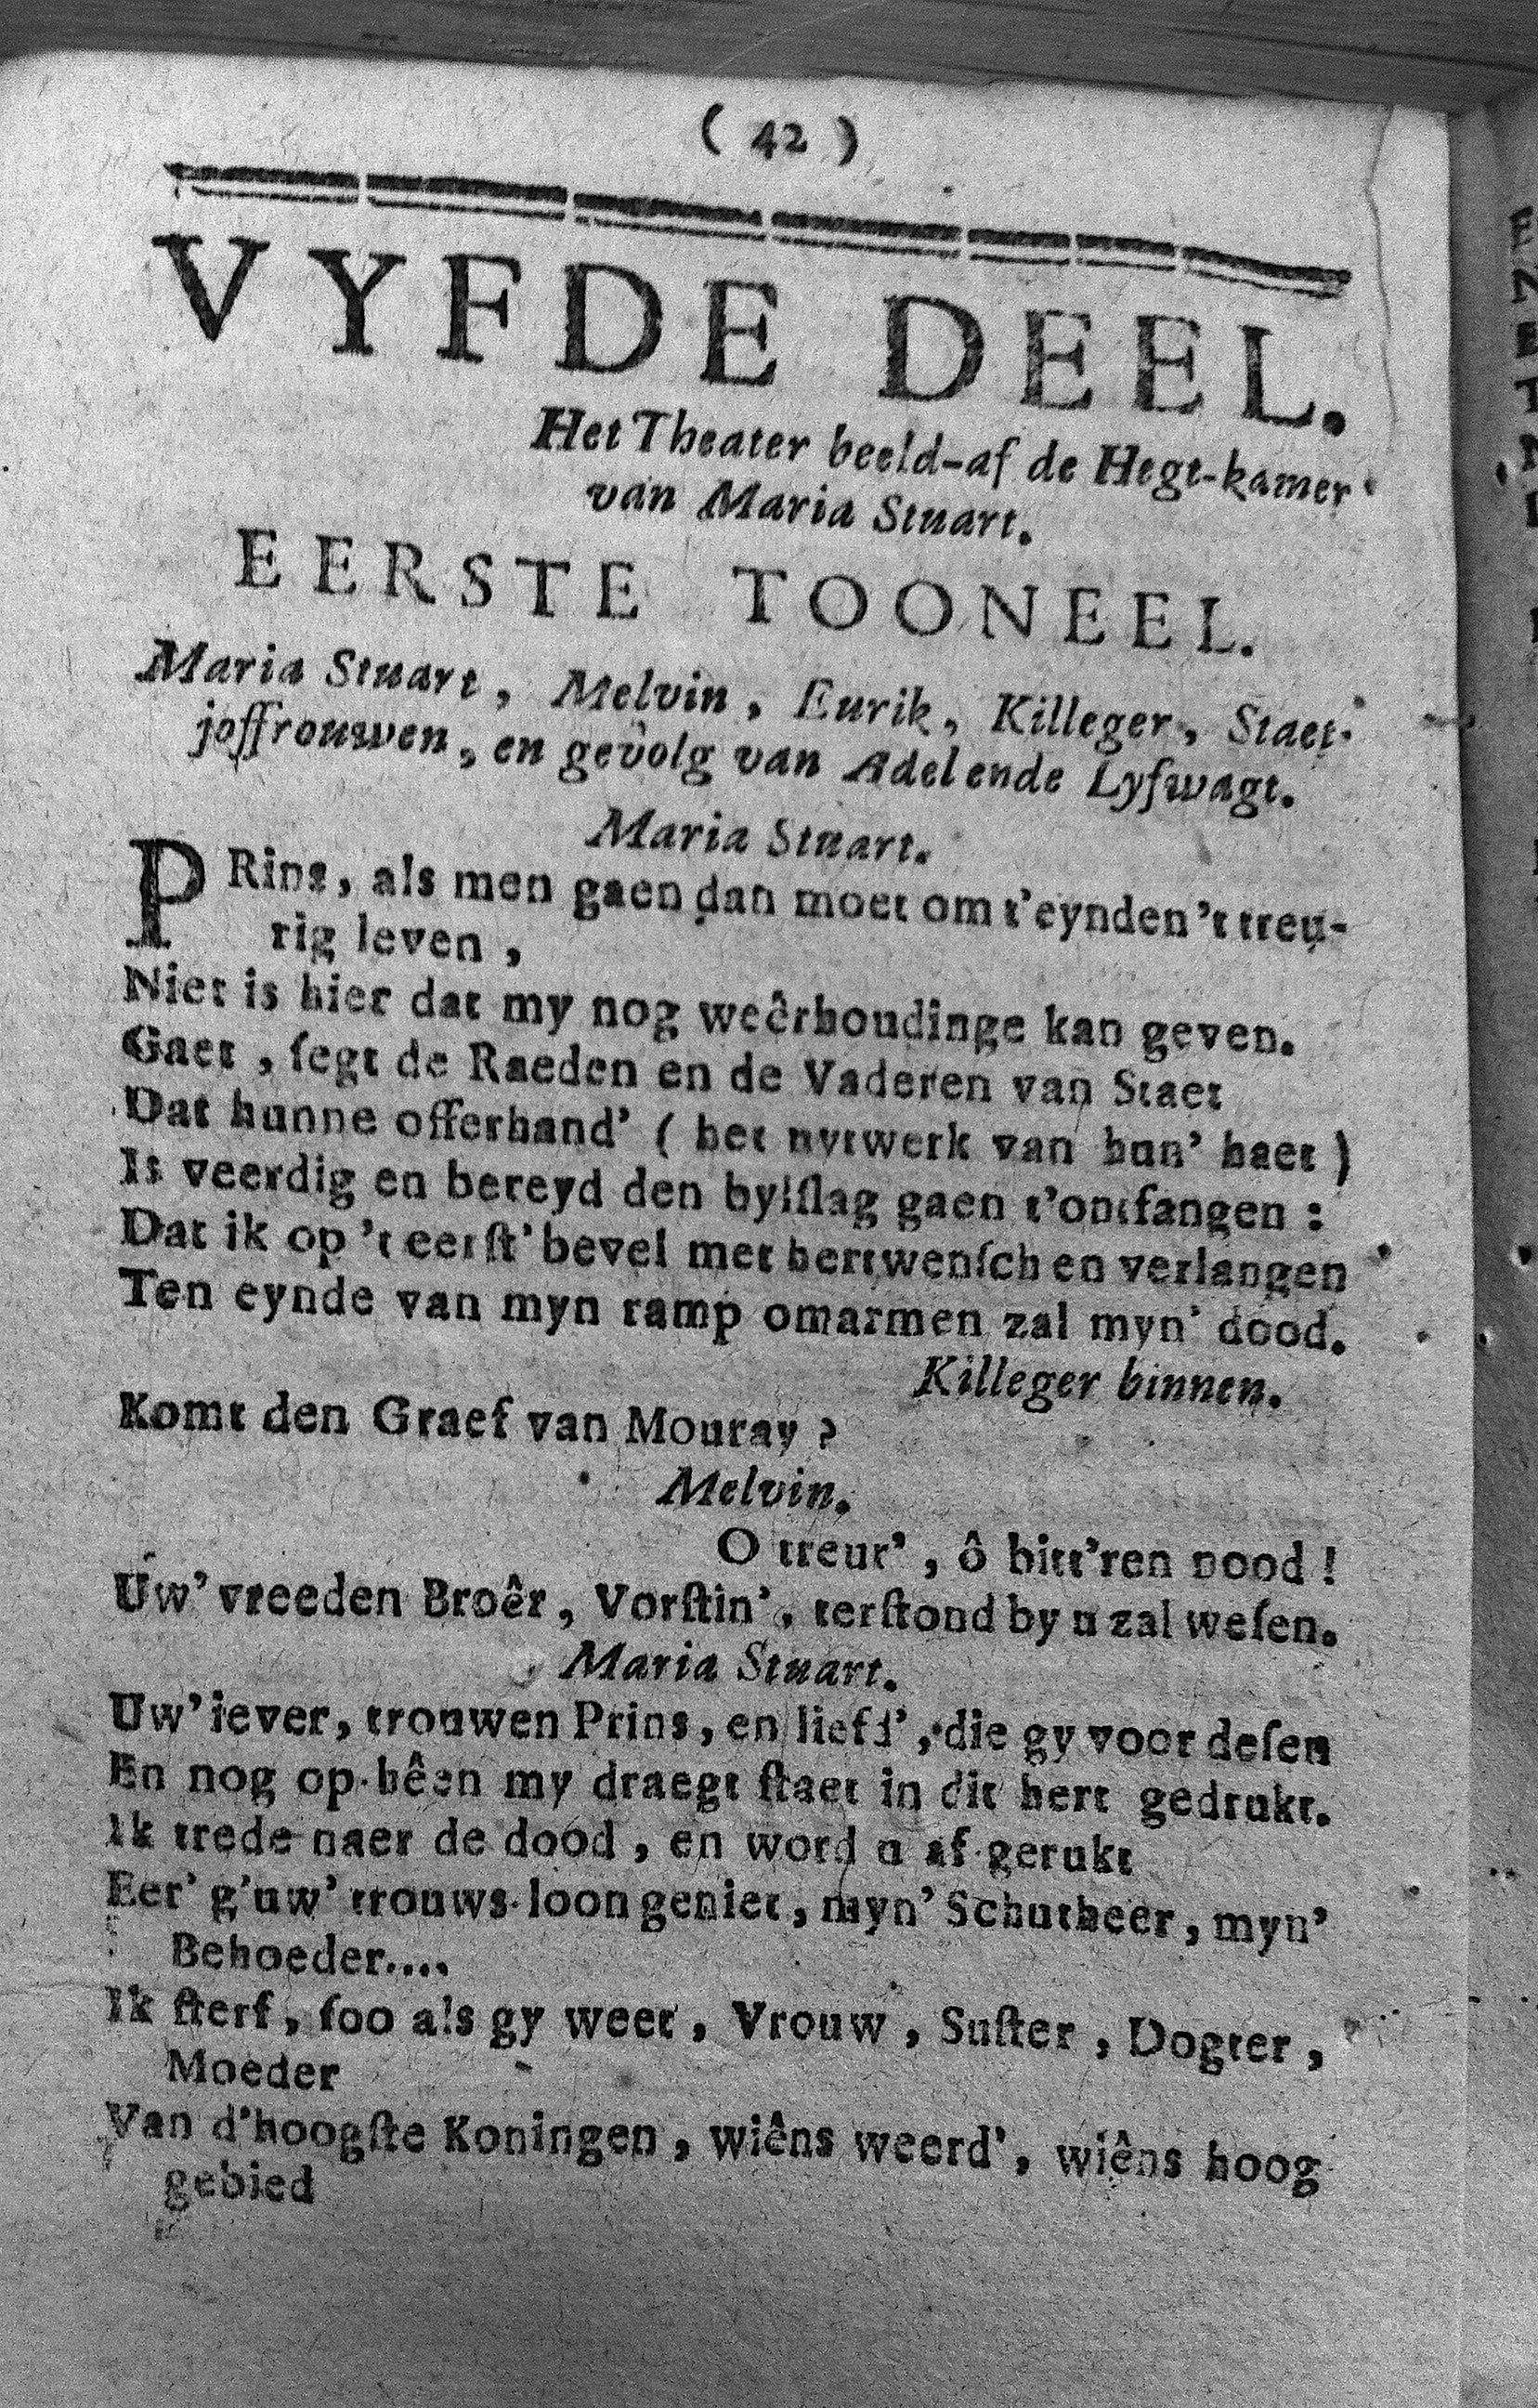 ( 42 )
VYFDE DEEL.
Het Theater beeld-af de Hegt-kamer
van Maria Stuart.
EERSTE TOONEEL.
Maria Stuart, Melvin, Eurik, Killeger, Staet-
joffrouwen, en gevolg van Adel ende Lyfwagt.
Maria Stuart.
PRins, als men gaen dan moet om t'eynden 't treu-
rig leven,
Niet is hier dat my nog weêrhoudinge kan geven.
Gaet, ſegt de Raeden en de Vaderen van Staet
Dat hunne offerhand' ( het uytwerk van hun' haet )
Is veerdig en bereyd den bylſlag gaen t'ontfangen :
Dat ik op 't eerſt' bevel met hertwenſch en verlangen
Ten eynde van myn ramp omarmen zal myn' dood.
Killeger binnen.
Komt den Graef van Mouray ?
Melvin.
O treur', ô bitt'ren nood !
Uw' vreeden Broêr, Vorſtin', terſtond by u zal weſen.
Maria Stuart.
Uw' iever, trouwen Prins, en liefd', die gy voor deſen
En nog op-hêen my draegt ſtaet in dit hert gedrukt.
Ik trede naer de dood, en word u af-gerukt
Eer' g'uw' trouws-loon geniet, myn' Schutheer, myn'
Behoeder....
Ik ſterf, ſoo als gy weet, Vrouw, Suſter, Dogter,
Moeder
Van d'hoogſte Koningen, wiêns weerd', wiêns hoog
gebied